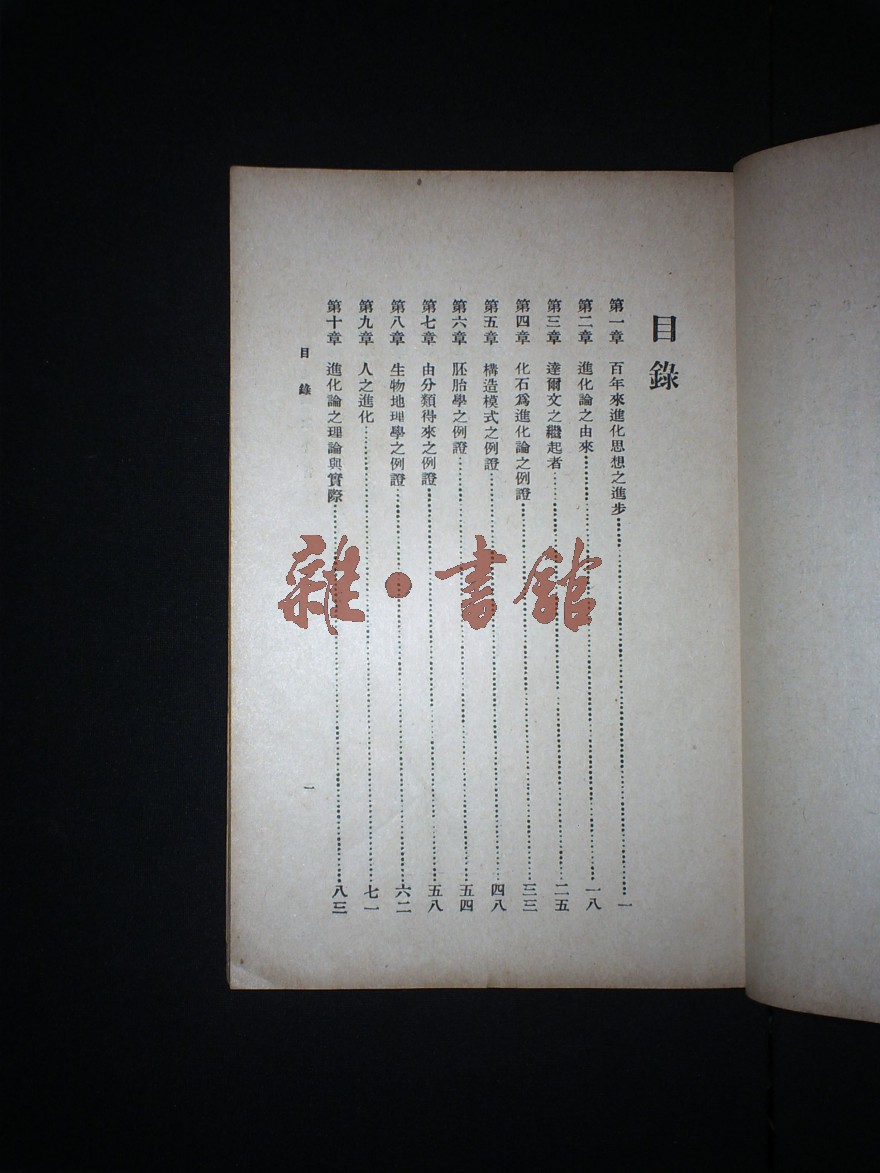 目錄
第一章 百年來進化思想之進步………一
第二章 進化論之由來………一八
第三章 達爾文之繼起者………二五
第四章 化石爲進化論之例證………三三
第五章 構造模式之例證………四八
第六章 胚胎學之例證………五四
第七章 由分類得來之例證………五八
第八章 生物地理學之例證………六二
第九章 人之進化………七一
第十章 進化論之理論與實際………八三
目錄 一
雜·書館